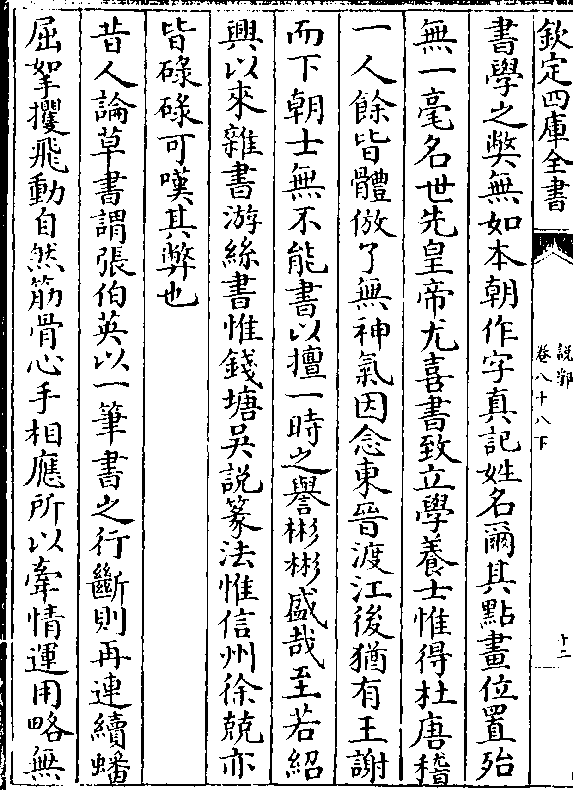 欽定四庫全書
說郛
卷八十八下
十二
書學之弊無如本朝作字真記姓名爾其點畫位置殆
無一毫名世先皇帝尤喜書致立學養士惟得杜唐稽
一人餘皆體倣了無神氣因念東晉渡江後猶有王謝
而下朝士無不能書以擅一時之譽彬彬盛哉至若紹
興以來雜書游絲書惟錢塘吳說篆法惟信州徐兢亦
皆碌碌可嘆其弊也
昔人論草書謂張伯英以一筆書之行斷則再連續蟠
屈拏攫飛動自然筋骨心手相應所以牽情運用略無